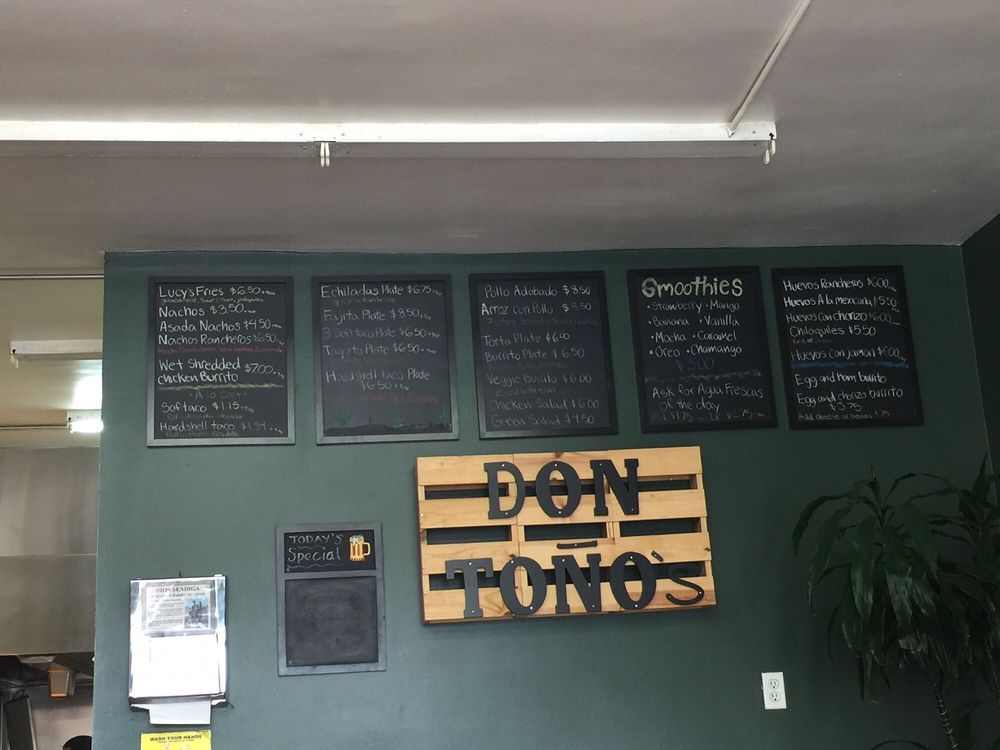 Lucy's Fries $6.50+tax
guacamole, sour cream, jalapeños
Nachos $3.50+tax
Asada Nachos $4.50+tax
Nachos Rancheros $6.50+tax
Wet Shredded $7.00+tax
chicken Burrito
A la Cart
Softaco $1.15+tax
Hardshell taco $1.84+tax
Echiladas Plate $6.75+tax
Fajita Plate $8.50+tax
3 Softtaco Plate $6.50+tax
Taquito Plate $6.50+tax
Hardshell taco Plate
$6.50+tax
Pollo Adobado $8.50
Arroz con Pollo $8.50
Torta Plate $6.00
Burrito Plate $6.50
Veggie Burrito $6.00
Chicken Salad $6.00
Green Salad $4.50
Smoothies
• Strawberry • Mango
• Banana • Vanilla
• Mocha • Caramel
• Oreo • Chamango
$3.00
Ask for Agua Frescas
of the day
$1.75
Huevos Rancheros $6.00
Huevos A la mexicana $5.50
Huevos con chorizo $6.00
Chilaquiles $5.50
Red or
Huevos con jamon $6.00
Egg and ham burrito
Egg and chorizo burrito
$3.75
Add cheese or beans $.75
DON
TOÑO's
TODAY'S
Special
DIOS BENDIGA
WASH YOUR HANDS